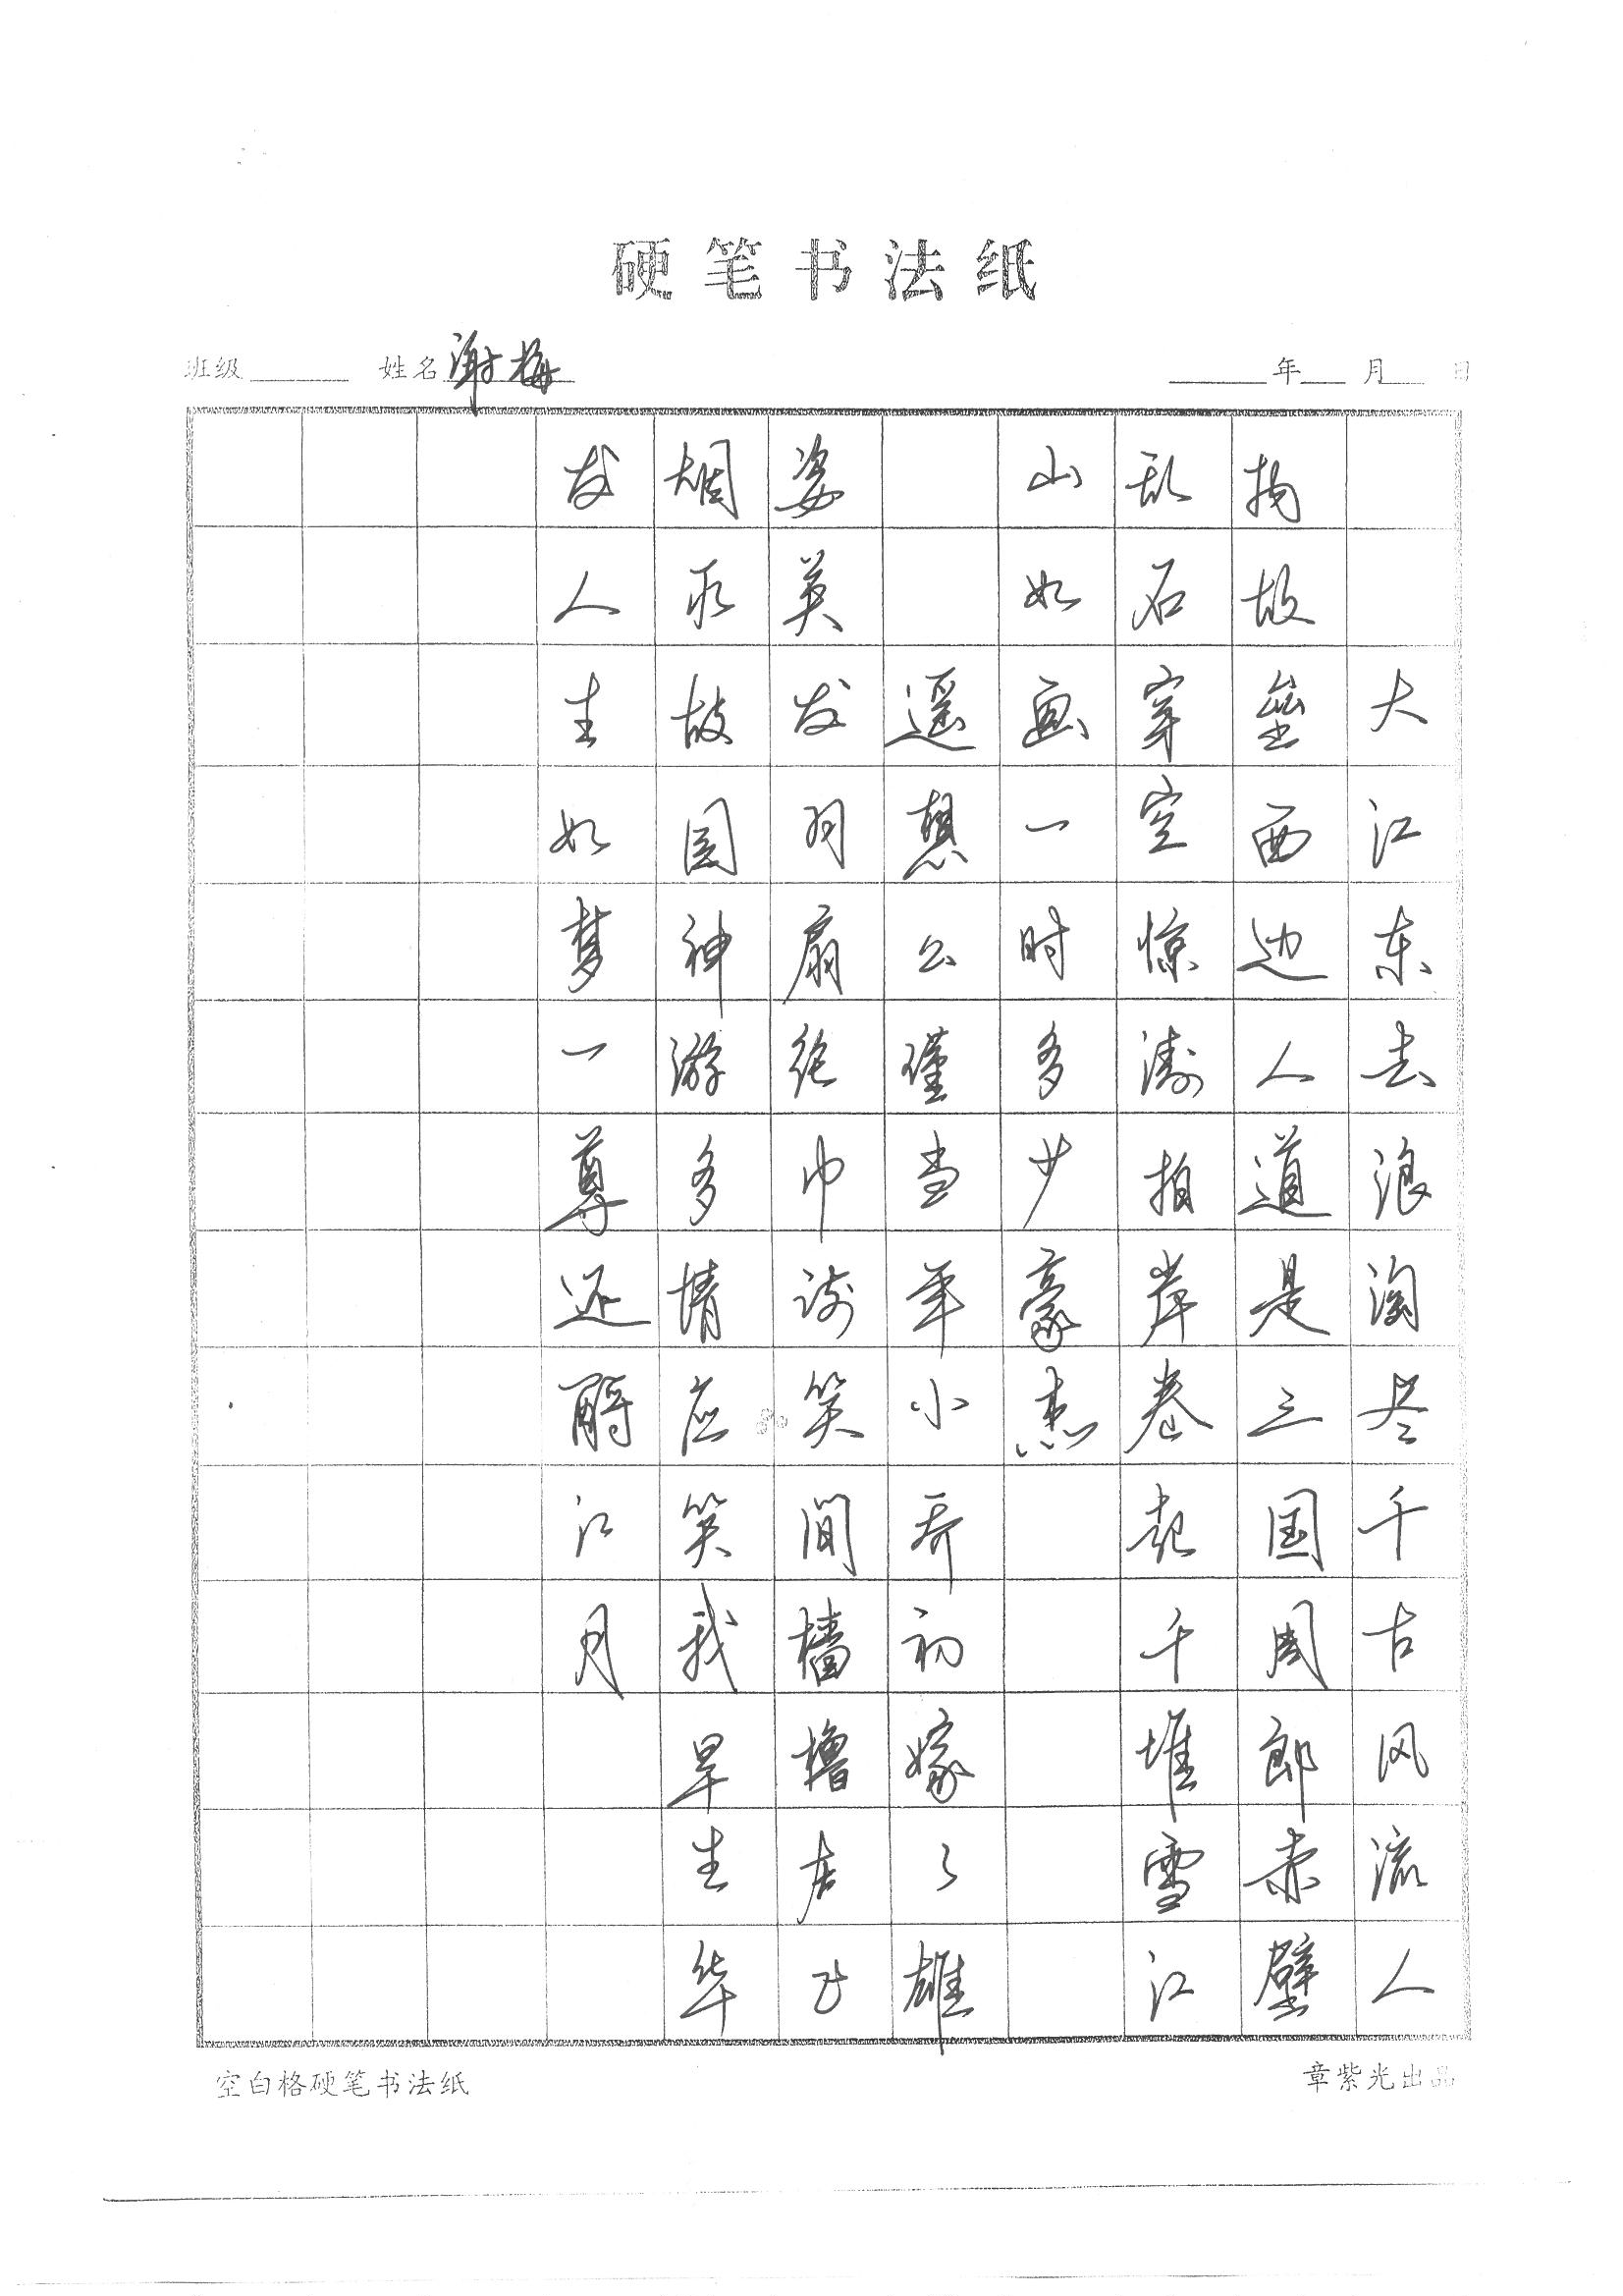 硬笔书法纸
班级 姓名 谢梅 年 月 日
大江东去浪淘尽千古风流人
物故垒西边人道是三国周郎赤壁
乱石穿空惊涛拍岸卷起千堆雪江
山如画一时多少豪杰
遥想公瑾当年小乔初嫁了雄
姿英发羽扇纶巾谈笑间樯橹灰飞
烟灭故国神游多情应笑我早生华
发人生如梦一尊还酹江月
空白格硬笔书法纸
章紫光出品